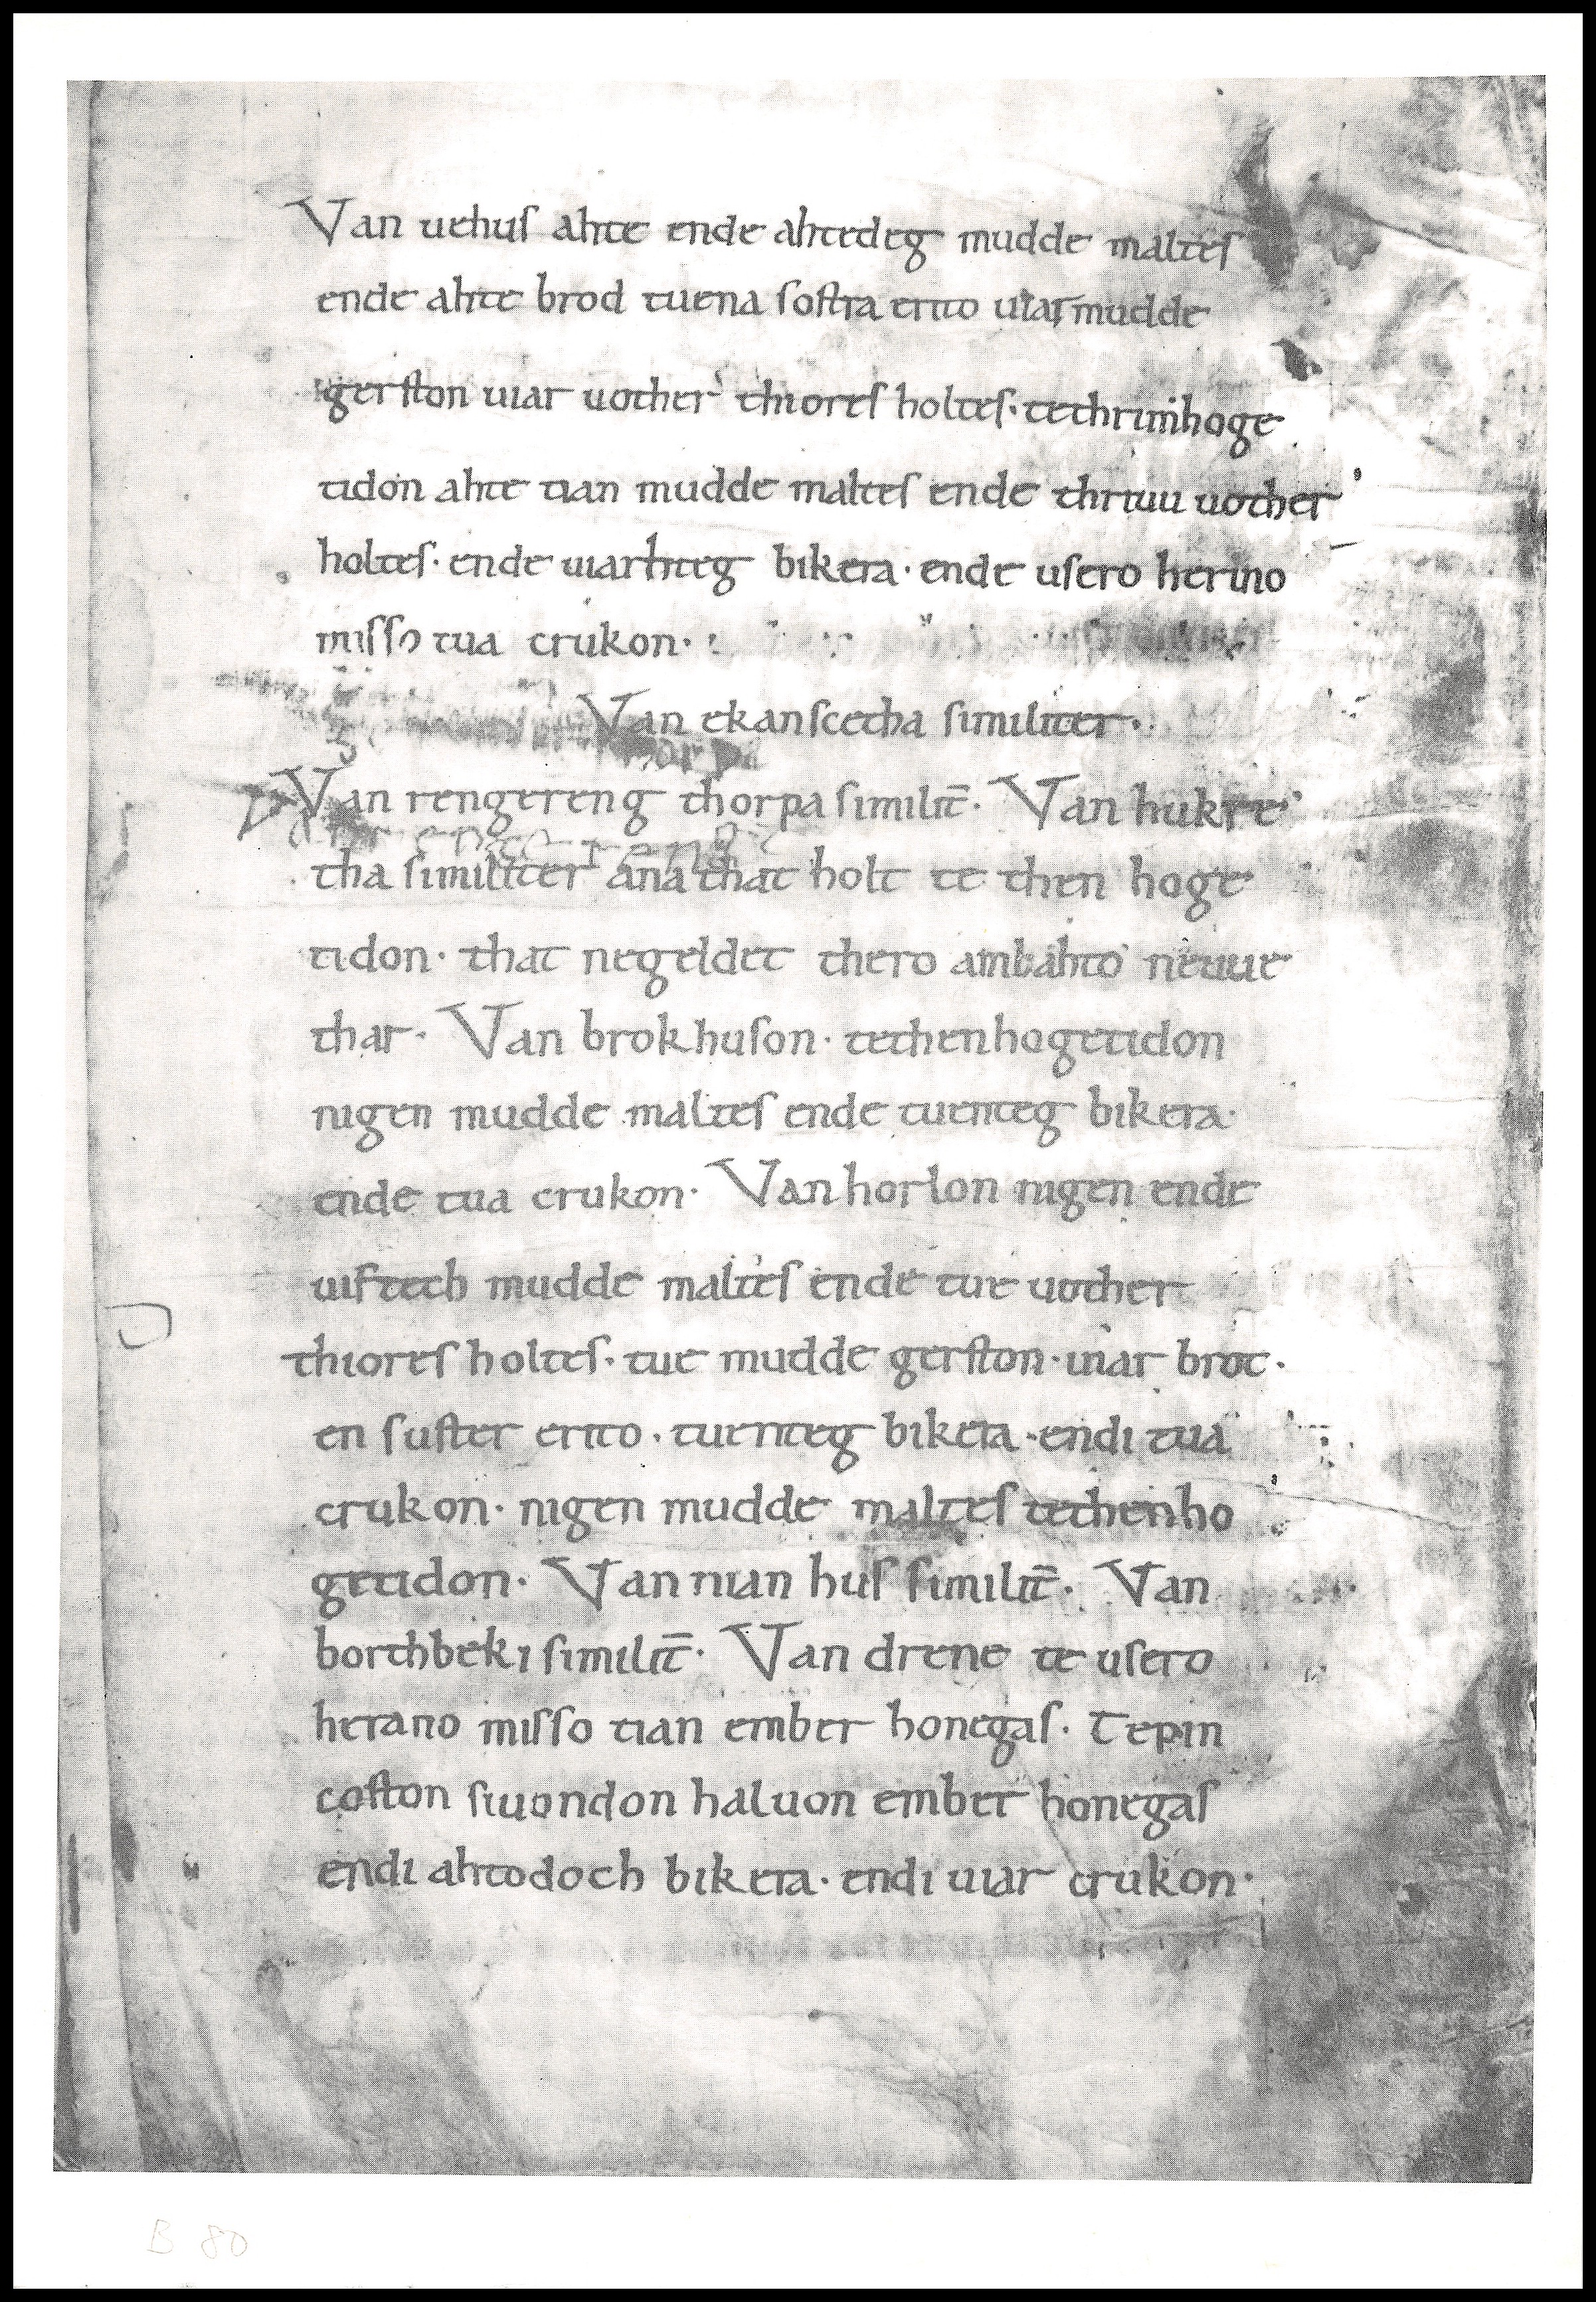 Van uehus ahte ende ahtedeg mudde maltes
ende ahte brod tuena sostra erito uiar mudde
gerston uiar uother thiores holtes· tethrimhoge
tidon ahte tian mudde maltes ende thriuu uother
holtes· ende uiarhteg bikera· ende usero herino
misso tua crukon·
Van ekanscetha similiter·
Van rengereng thorpa similit̄· Van hukre
tha similiter ana that holt te then hoge
tidon· that negeldet thero ambahto neuue
thar· Van brokhuson· tethenhogetidon
nigen mudde maltes ende tuenteg bikera·
ende tua crukon· Van horlon nigen ende
uifteth mudde maltes ende tue uother
thiores holtes· tue mudde gerston· uiar brot·
en suster erito· tuenteg bikera· endi tua
crukon· nigen mudde maltes tethenho
getidon· Van nian hus similit̄· Van
borthbeki similit̄· Van drene te usero
herano misso tian ember honegas· Tepin
coston siuondon haluon ember honegas
endi ahtodoch bikera· endi uiar crukon·
B 80